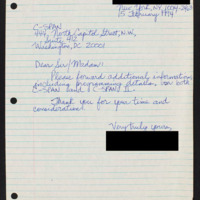 New York, NY 10014-2460
15 February 1994
C-SPAN
444, North Capitol Street, N.W.
Suite 412
Washington, DC 20001
Dear Sir/Madam:
Please forward additional information
including programming details, on both
C-SPAN I and C-SPAN II.
Thank you for your time and
consideration!
Very truly yours,